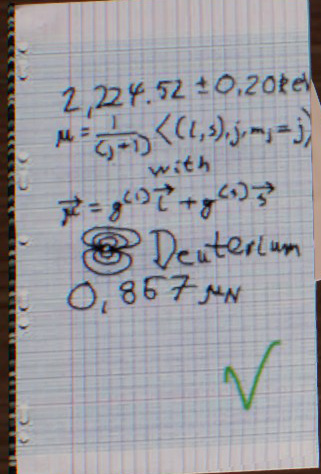 2,224.52 ± 0,20 keV
μ = 1/(j+1) <(l,s),j,mj=j)
with
μ⃗ = g(l) l⃗ + g(s) s⃗
Deuterium
0,857 μN